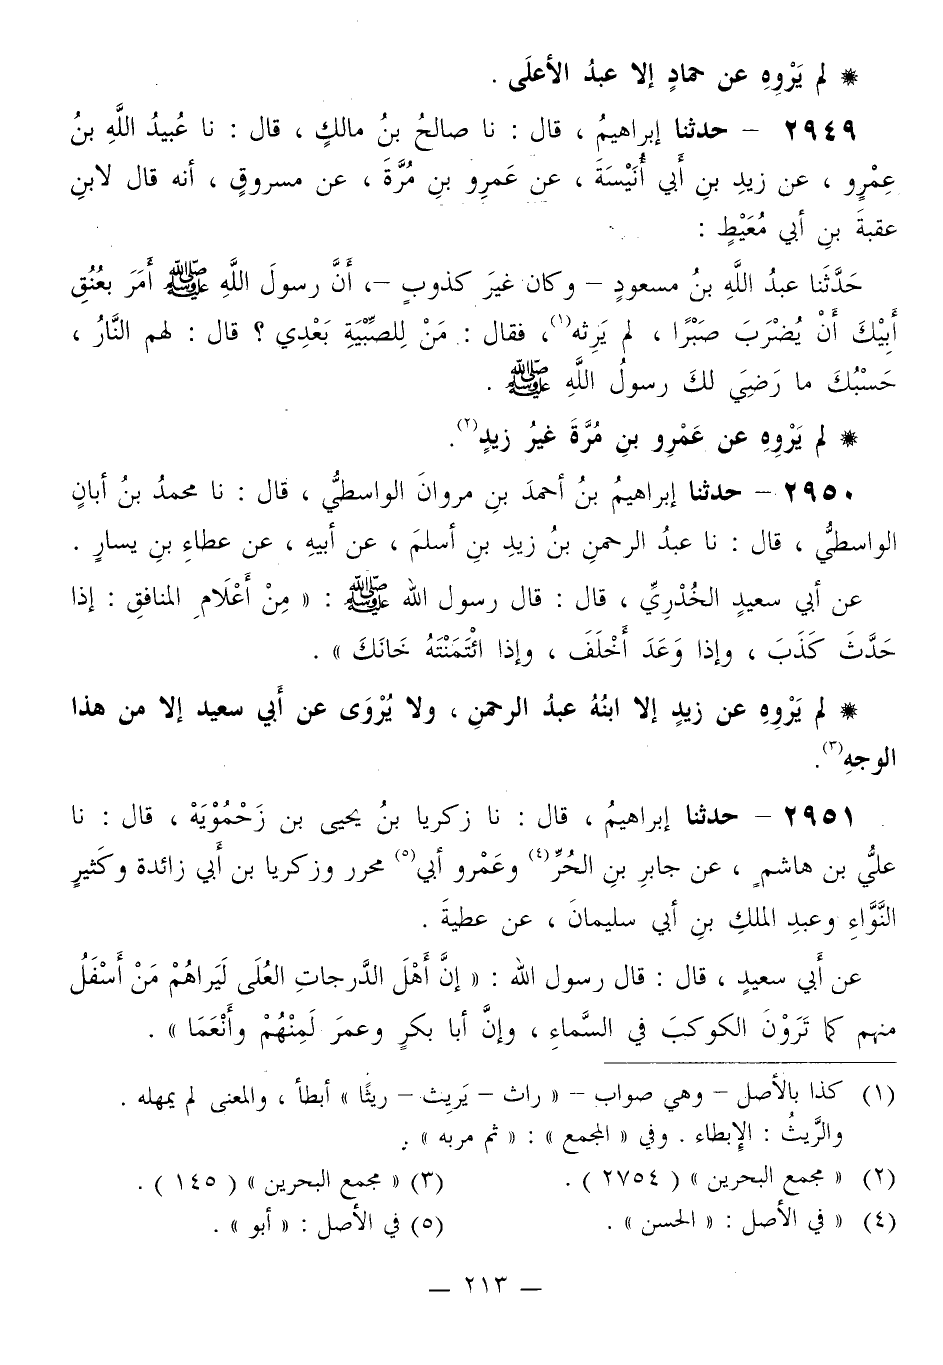 * لم يَرْوِهِ عن حمادٍ إلا عبدُ الأعلَى .
٢٩٤٩ – حدثنا إبراهيمُ ، قال : نا صالحُ بنُ مالكٍ ، قال : نا عُبيدُ اللَّهِ بنُ
عِمْرٍو ، عن زيدِ بنِ أَبي أُنَيْسَةَ ، عن عَمرِو بنِ مُرَّةَ ، عن مسروقٍ ، أنه قال لابنِ
عقبةَ بنِ أبي مُعَيْطٍ :
حَدَّثَنا عبدُ اللَّهِ بنُ مسعودٍ – وكان غيرَ كذوبٍ –، أَنَّ رسولَ اللَّهِ ﷺ أَمَرَ بعُنُقِ
أَبِيْكَ أَنْ يُضْرَبَ صَبْرًا ، لم يَرِثه(١)، فقال : مَنْ لِلصِّبْيَةِ بَعْدِي ؟ قال : لهم النَّارُ ،
حَسْبُكَ ما رَضِيَ لكَ رسولُ اللَّهِ ﷺ .
* لم يَرْوِهِ عن عَمْرِو بنِ مُرَّةَ غيرُ زيدٍ(٢).
٢٩٥٠ – حدثنا إبراهيمُ بنُ أحمدَ بنِ مروانَ الواسطيُّ ، قال : نا محمدُ بنُ أبانٍ
الواسطيُّ ، قال : نا عبدُ الرحمنِ بنُ زيدِ بنِ أسلمَ ، عن أبيهِ ، عن عطاءِ بنِ يسارٍ .
عن أبي سعيدٍ الخُدْرِيِّ ، قال : قال رسول الله ﷺ : « مِنْ أَعْلَامِ المنافقِ : إذا
حَدَّثَ كَذَبَ ، وإذا وَعَدَ أَخْلَفَ ، وإذا ائْتَمَنْتَهُ خَانَكَ » .
* لم يَرْوِهِ عن زيدٍ إلا ابنُهُ عبدُ الرحمنِ ، ولا يُرْوَى عن أَبي سعيد إلا من هذا
الوجهِ(٣).
٢٩٥١ – حدثنا إبراهيمُ ، قال : نا زكريا بنُ يحيى بن زَحْمُوْيَهْ ، قال : نا
عليُّ بن هاشمٍ ، عن جابرِ بنِ الحُرِّ(٤) وعَمْرو أبي(٥) محرر وزكريا بن أَبي زائدة وكَثيرٍ
النَّوَّاءِ وعبدِ الملكِ بنِ أبي سليمانَ ، عن عطيةَ .
عن أَبي سعيدٍ ، قال : قال رسول الله : « إنَّ أَهْلَ الدَّرجاتِ العُلَى لَيَراهُمْ مَنْ أَسْفَلُ
منهم كما تَرَوْنَ الكوكبَ في السَّماءِ ، وإنَّ أبا بكرٍ وعمرَ لَمِنْهُمْ وأَنْعَمَا » .
(١) كذا بالأصل – وهي صواب – « راث – يَريث – ريثًا » أبطأ ، والمعنى لم يمهله .
والرَّيثُ : الإبطاء . وفي « المجمع » : « ثم مربه » .
(٢) « مجمع البحرين » ( ٢٧٥٤ ) .
(٣) « مجمع البحرين » ( ١٤٥ ) .
(٤) « في الأصل : « الحسن » .
(٥) في الأصل : « أبو » .
— ٢١٣ —